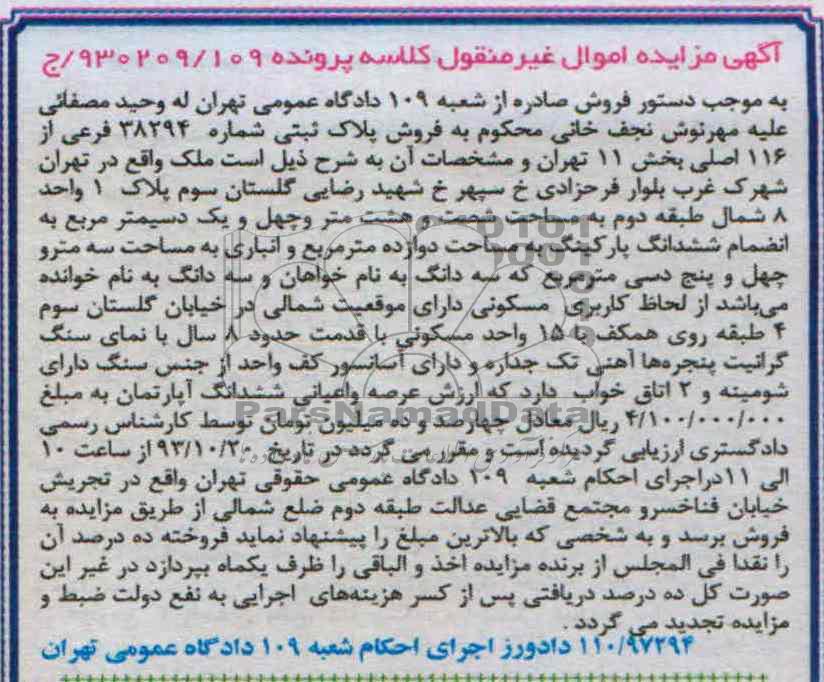 آگهی مزایده اموال غیرمنقول کلاسه پرونده ۹۳۰۲۰۹/۱۰۹/ج
به موجب دستور فروش صادره از شعبه ۱۰۹ دادگاه عمومی تهران له وحید مصفائی
علیه مهرنوش نجف خانی محکوم به فروش پلاک ثبتی شماره ۳۸۲۹۴ فرعی از
۱۱۶ اصلی بخش ۱۱ تهران و مشخصات آن به شرح ذیل است ملک واقع در تهران
شهرک غرب بلوار فرحزادی خ سپهر خ شهید رضایی گلستان سوم پلاک ۱ واحد
۸ شمال طبقه دوم به مساحت شصت و هشت متر وچهل و یک دسیمتر مربع به
انضمام ششدانگ پارکینگ به مساحت دوازده مترمربع و انباری به مساحت سه مترو
چهل و پنج دسی مترمربع که سه دانگ به نام خواهان و سه دانگ به نام خوانده
می‌باشد از لحاظ کاربری مسکونی دارای موقعیت شمالی در خیابان گلستان سوم
۴ طبقه روی همکف با ۱۵ واحد مسکونی با قدمت حدود ۸ سال با نمای سنگ
گرانیت پنجره‌ها آهنی تک جداره و دارای آسانسور کف واحد از جنس سنگ دارای
شومینه و ۲ اتاق خواب دارد که ارزش عرصه واعیانی ششدانگ آپارتمان به مبلغ
۴/۱۰۰/۰۰۰/۰۰۰ ریال معادل چهارصد و ده میلیون تومان توسط کارشناس رسمی
دادگستری ارزیابی گردیده است و مقرر می گردد در تاریخ ۹۳/۱۰/۲۰ از ساعت ۱۰
الی ۱۱دراجرای احکام شعبه ۱۰۹ دادگاه عمومی حقوقی تهران واقع در تجریش
خیابان فناخسرو مجتمع قضایی عدالت طبقه دوم ضلع شمالی از طریق مزایده به
فروش برسد و به شخصی که بالاترین مبلغ را پیشنهاد نماید فروخته ده درصد آن
را نقدا فی المجلس از برنده مزایده اخذ و الباقی را ظرف یکماه بپردازد در غیر این
صورت کل ده درصد دریافتی پس از کسر هزینه‌های اجرایی به نفع دولت ضبط و
مزایده تجدید می گردد .
۱۱۰/۹۷۲۹۴ دادورز اجرای احکام شعبه ۱۰۹ دادگاه عمومی تهران
ParsNamadData